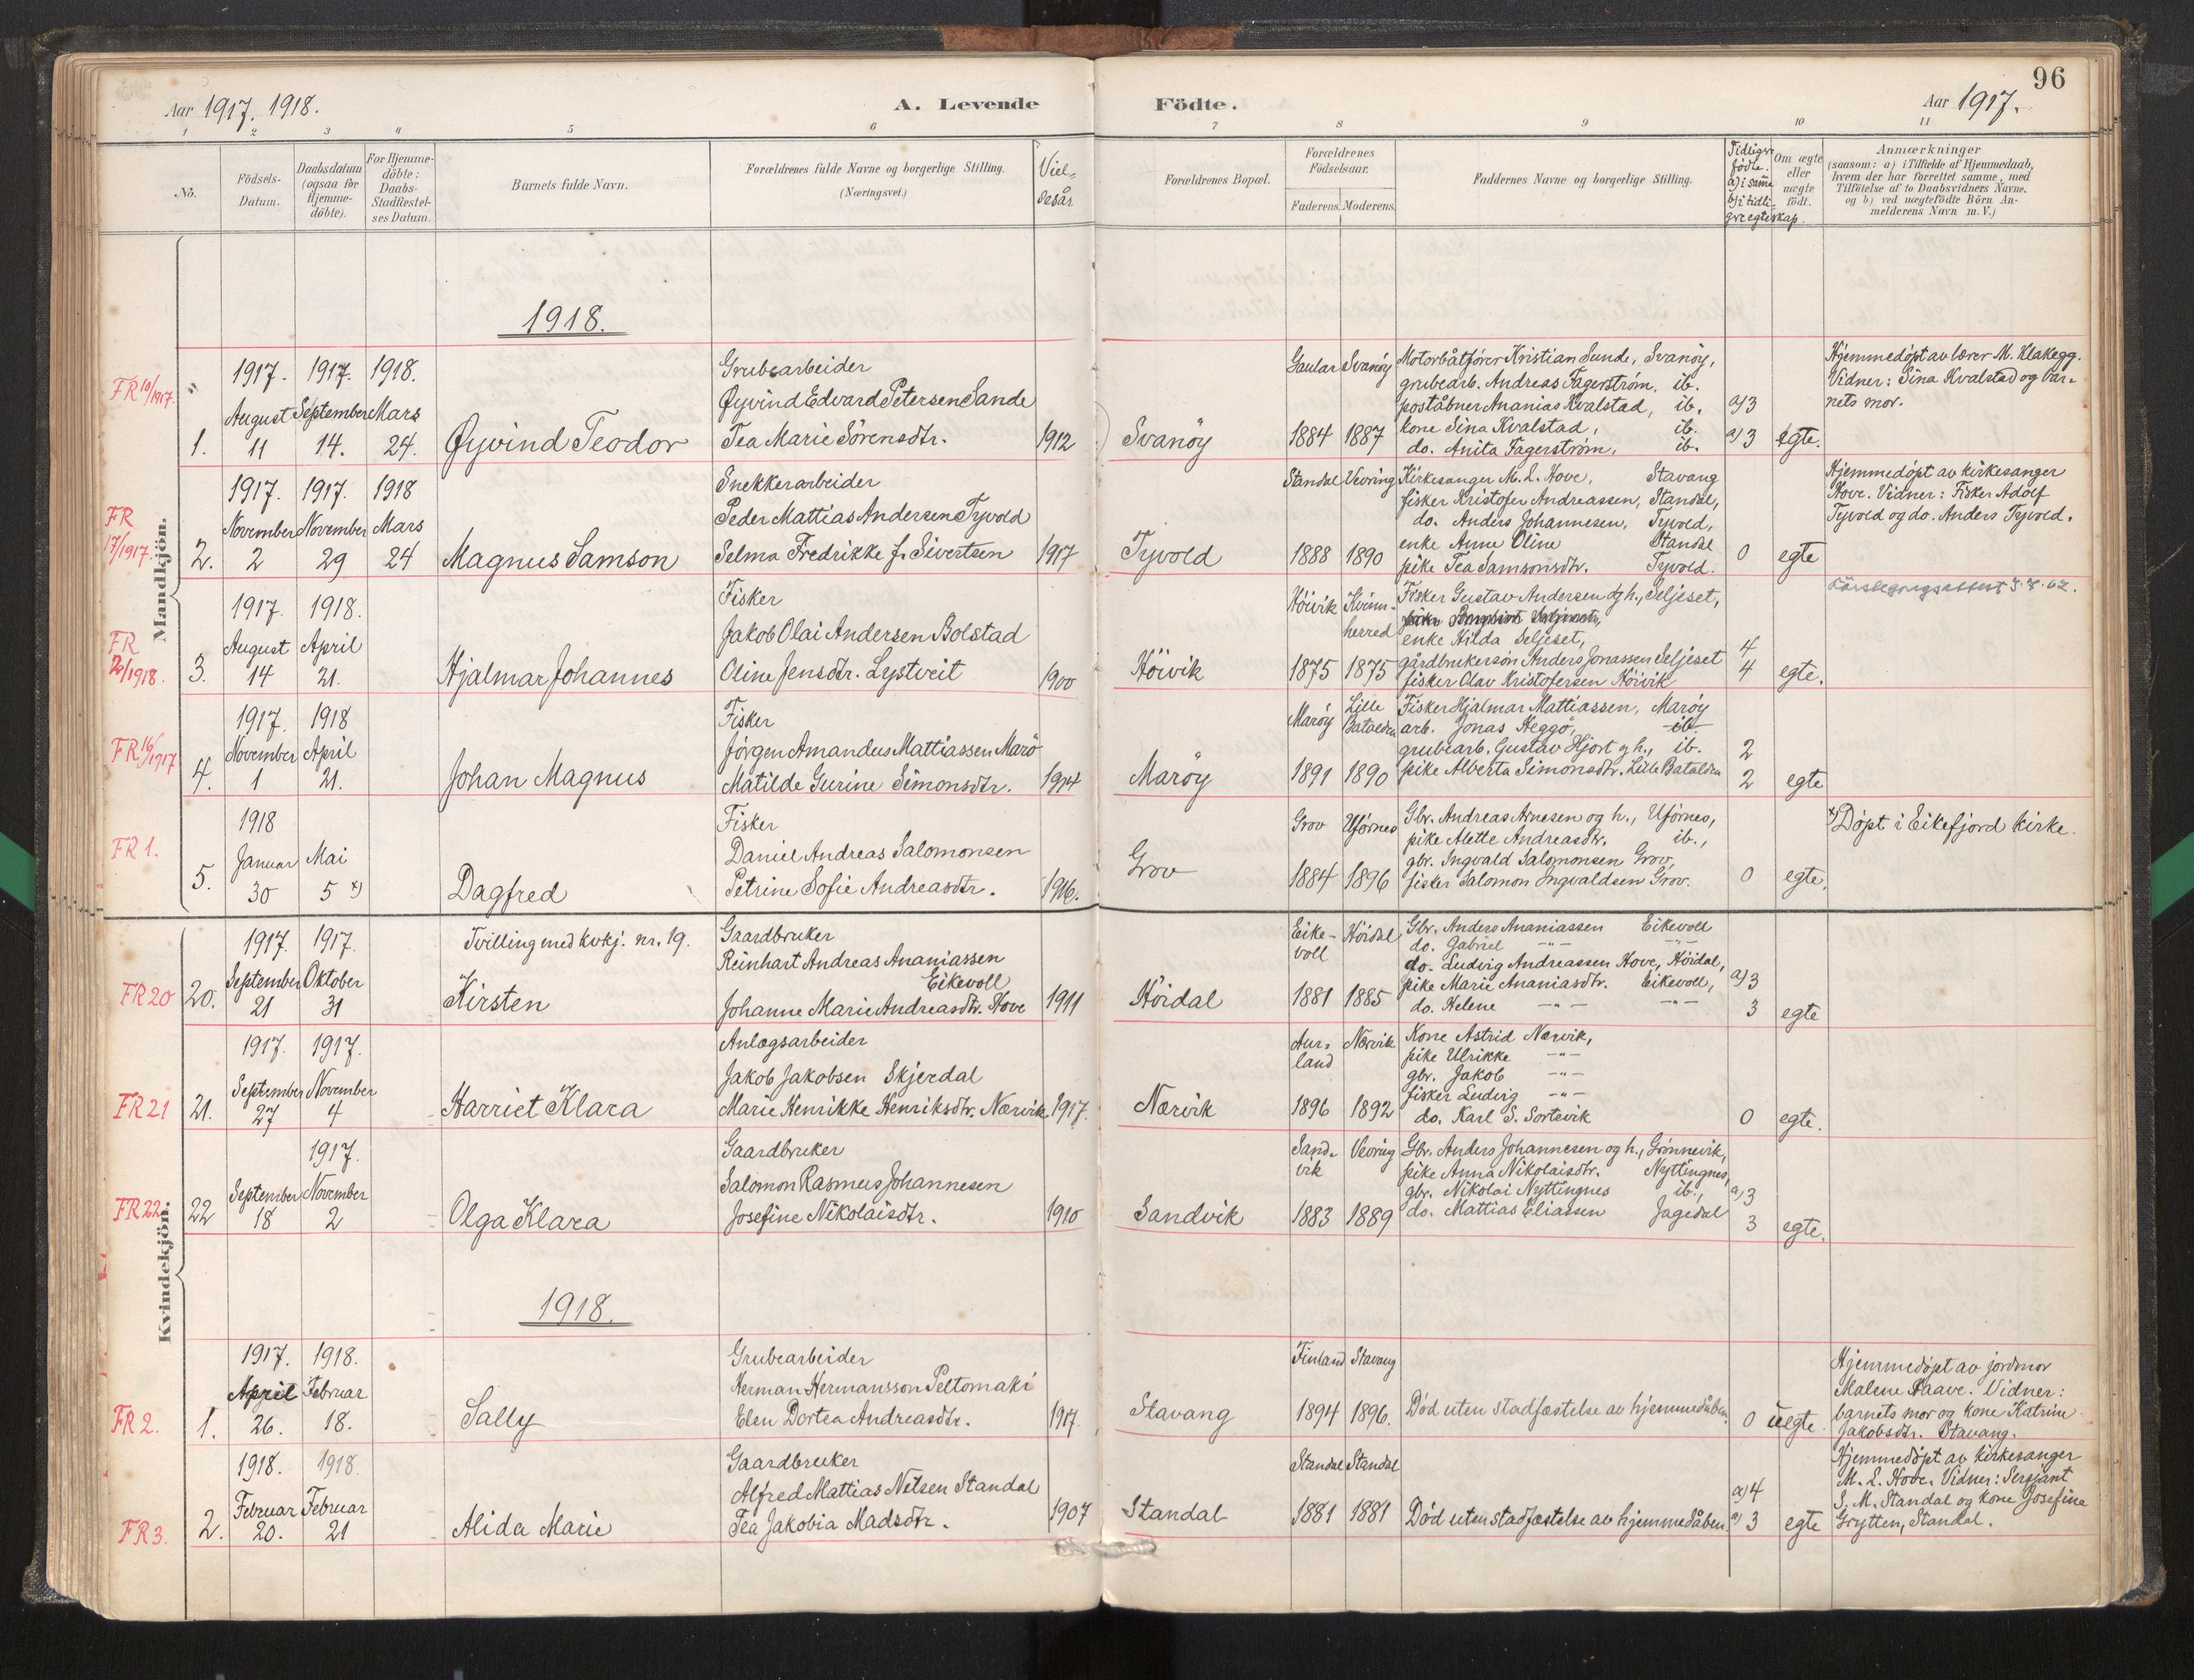 96
Aar 1917. 1918.
A. Levende
Födte.
Aar 1917.
1 2 3 4 5 6 7 8 9 10 11
No.
Födsels-
Datum.
Daabsdatum
(ogsaa for
Hjemme-
döbte).
For Hjemme-
döbte:
Daabs-
Stadfæstel-
ses Datum.
Barnets fulde Navn.
Forældrenes fulde Navne og borgerlige Stilling.
(Næringsvei.)
Viel-
sesår
Forældrenes Bopæl.
Forældrenes
Födselsaar.
Faderens. Moderens.
Faddernes Navne og borgerlige Stilling.
Tidligere
födte.
a) i samme
b) i tidli-
gere egteskap.
Om ægte
eller
uægte
født.
Anmærkninger
(saasom: a) i Tilfælde af Hjemmedaab,
hvem der har forrettet samme, med
Tilföielse af to Daabsvidners Navne.
og b) ved uægtefödte Börn An-
melderens Navn m. V.)
Mandkjön.
1918.
FR 10/1917.
1.
1917.
August
11
1917.
September
14.
1918.
Mars
24.
Øyvind Teodor
Grubearbeider
Øyvind Edvard Petersen Sande
Tea Marie Sörensdtr.
1912
Svanöy
Gaular
1884
Svanöy
1887
Motorbåtfører Kristian Sunde, Svanöy,
grubearb. Andreas Fagerström, ib.
poståbner Ananias Kvalstad, ib.
kone Sina Kvalstad, ib.
do. Anita Fagerström, ib.
a) 3
a) 3
egte.
Hjemmedöpt av lærer M. Klakegg.
Vidner: Sina Kvalstad og bar-
nets mor.
FR
17/1917.
2.
1917.
November
2
1917.
November
29
1918
Mars
24
Magnus Samson
Snekkerarbeider
Peder Mattias Andersen Tyvold
Selma Fredrikke f. Sivertsen
1917
Tyvold
Standal
1888
Vevring
1890
Kirkesanger M. L. Hove, Stavang
fisker Kristofer Andreassen, Standal,
do. Anders Johannesen, Tyvold,
enke Anne Oline Standal
pike Tea Samsonsdtr. Tyvold.
0
egte
Hjemmedöpt av kirkesanger
Hove. Vidner: Fisker Adolf
Tyvold og do. Anders Tyvold.
FR
20/1918.
3.
1917.
August
14
1918.
April
21.
Hjalmar Johannes
Fisker
Jakob Olai Andersen Bolstad
Oline Jensdtr. Lystveit
1900
Höivik
Höivik
1875
Kvinn-
herred
1875
Fisker Gustav Andersen og h., Seljeset,
enke Hilda Seljeset,
gårdbrukersön Anders Jonassen Seljeset
fisker Olav Kristofersen Höivik
4
4
egte.
FR 16/1917
4.
1917.
November
1
1918
April
21.
Johan Magnus
Fisker
Jörgen Amandus Mattiassen Marö
Matilde Gurine Simonsdtr.
1914
Maröy
Maröy
1891
Lille
Bataldra
1890
Fisker Hjalmar Mattiassen, Maröy
arb. Jonas Heggö, ib.
grubearb. Gustav Hjort og h., ib.
pike Alberta Simonsdtr. Lille Bataldra
2
2
egte
FR 1.
5.
1918
Januar
30
Mai
5 x)
Dagfred
Fisker
Daniel Andreas Salomonsen
Petrine Sofie Andreasdtr.
1916.
Grov
Grov
1884
Uförnes
1896
Gbr. Andreas Arnesen og h., Uförnes,
pike Alette Andreasdtr. ib.,
gbr. Ingvald Salomonsen Grov,
fisker Salomon Ingvaldsen Grov.
0
egte.
x) Döpt i Eikefjord kirke.
Kvindekjön.
FR 20
20.
1917.
September
21
1917.
Oktober
31
Tvilling med kvkj. nr. 19.
Kirsten
Gaardbruker
Reinhart Andreas Ananiassen
Eikevoll
Johanne Marie Andreasdtr. Hove
1911
Höidal
Eike-
voll
1881
Höidal
1885
Gbr. Anders Ananiassen Eikevoll
do. Gabriel -"- -"-
do. Ludvig Andreassen Hove, Höidal,
pike Marie Ananiasdtr. Eikevoll,
do. Helene -"- -"-
a) 3
3
egte
FR 21
21.
1917.
September
27
1917.
November
4
Harriet Klara
Anlægsarbeider
Jakob Jakobsen Skjerdal
Marie Henrikke Henriksdtr. Nærvik
1917.
Nærvik
Aur-
land
1896
Nærvik
1892
Kone Astrid Nærvik,
pike Ulrikke -"-
gbr. Jakob -"-
fisker Ludvig -"-
do. Karl S. Sortevik
0
egte.
FR 22
22
September
18
1917.
November
2
Olga Klara
Gaardbruker
Salomon Rasmus Johannesen
Josefine Nikolaisdtr.
1910
Sandvik
Sand-
vik
1883
Vevring
1889
Gbr. Anders Johannesen og h., Grönnevik,
pike Anna Nikolaisdtr. Nyttingnes,
gbr. Nikolai Nyttingnes ib.,
do. Mattias Eliassen Jagedal
a) 3
3
egte.
1918.
FR 2.
1.
1917.
April
26.
1918.
Februar
18.
Sally
Grubearbeider
Herman Hermansson Peltomaki
Elen Dortea Andreasdtr.
1917.
Stavang
Finland
1894
Stavang
1896.
Död uten stadfæstelse av hjemmedåben.
0
uegte.
Hjemmedöpt av jordmor
Malene Haave. Vidner:
barnets mor og kone Katrine
Jakobsdtr. Stavang.
FR 3.
2.
1918.
Februar
20.
1918.
Februar
21
Alida Marie
Gaardbruker
Alfred Mattias Nilsen Standal
Tea Jakobia Madsdtr.
1907
Standal
Standal
1881
Standal
1881
Död uten stadfæstelse av hjemmedåben
a) 4
a) 3
egte
Hjemmedöpt av kirkesanger
M. L. Hove. Vidner: Sersjant
S. M. Standal og kone Josefine
Grytten, Standal.